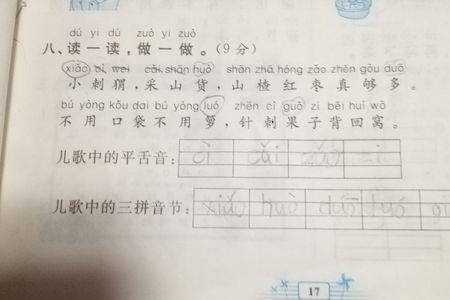 dú yi dú zuò yi zuò
八、读一读,做一做。(9分)
xiǎo cì wei cǎi shān huò shān zhā hóng zǎo zhēn gòu duō
小刺猬,采山货,山楂红枣真够多。
bú yòng kǒu dai bú yòng luó zhēn cì guǒ zi bēi huí wō
不用口袋不用箩,针刺果子背回窝。
儿歌中的平舌音: cì cǎi zi
儿歌中的三拼音节: xiǎo huò duō luó
17